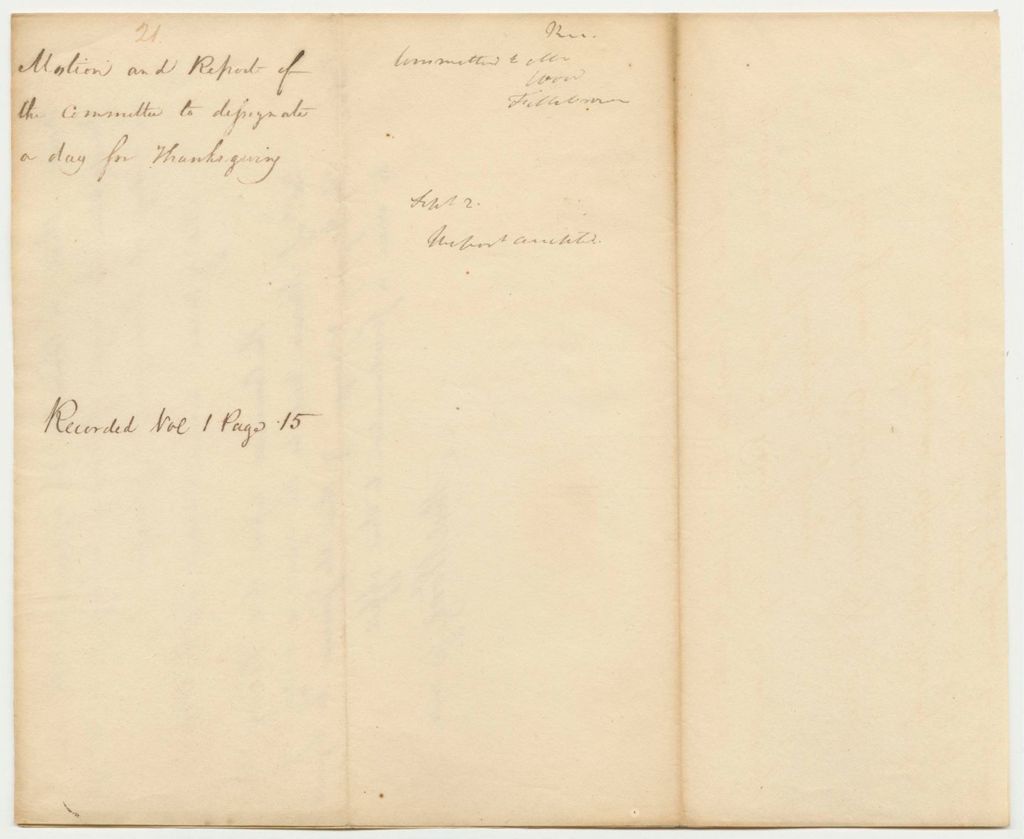 21.
Motion and Report of
the committee to designate
a day for Thanksgiving
Recorded Vol 1 Page 15
Committed to
Sept 2.
Report accepted.